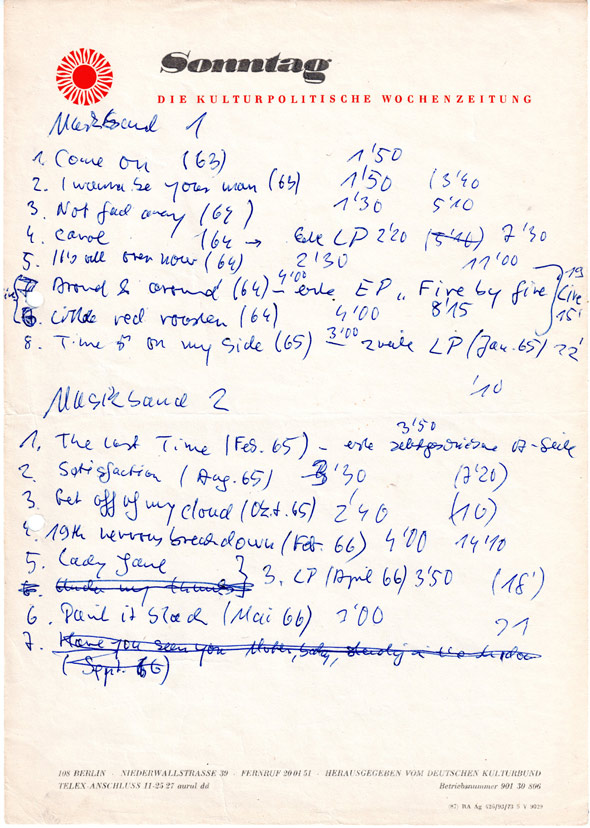 Sonntag
DIE KULTURPOLITISCHE WOCHENZEITUNG
Musikband 1
1. Come on (63) 1'50
2. I wanna be your man (63) 1'50 (3'40
3. Not fad away (64) 1'30 5'10
4. Carol (64 → erste LP 2'20 (5'10) 7'30
5. It's all over now (64) 2'30 11'00
Around & around (64) – 4'00 erste EP „Five by five
Little red rooster (64) 4'00 8'15
8. Time is on my side (65) – 3'00 zweite LP (Jan. 65) 22'
'10
Musikband 2
3'50
1. The last Time (Feb. 65) – erste selbstgeschriebene A-Seite
2. Satisfaction (Aug. 65) 3'30 (7'20)
3. Get off of my cloud (Okt. 65) 2'40 (10)
4. 19th nervous breakdown (Feb. 66) 4'00 14'10
5. Lady Jane } 3. LP (April 66) 3'50 (18')
6. Under my thumb
6. Paint it black (Mai 66) 3'00 21
7. Have you seen your Mother, baby, standing in the shadow
(Sept. 66)
108 BERLIN · NIEDERWALLSTRASSE 39 · FERNRUF 20 01 51 · HERAUSGEGEBEN VOM DEUTSCHEN KULTURBUND
TELEX-ANSCHLUSS 11-25 27 aurol dd Betriebsnummer 901 30 866